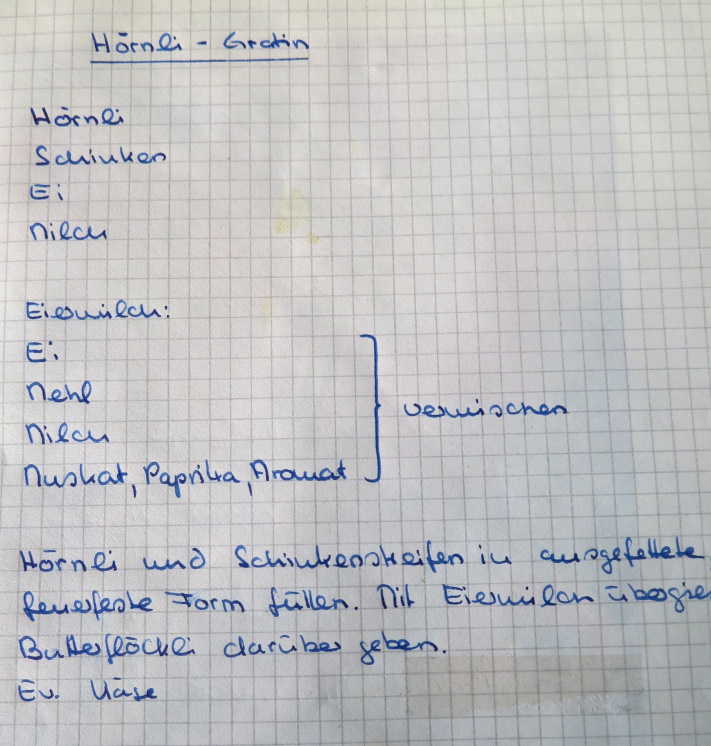 Hörnli - Gratin
Hörnli
Schinken
Ei
Milch
Eiermilch:
Ei
Mehl
Milch
Muskat, Paprika, Aromat
vermischen
Hörnli und Schinkenstreifen in ausgefettete
feuerfeste Form füllen. Mit Eiermilch übergie
Butterflöckli darüber geben.
Ev. Käse